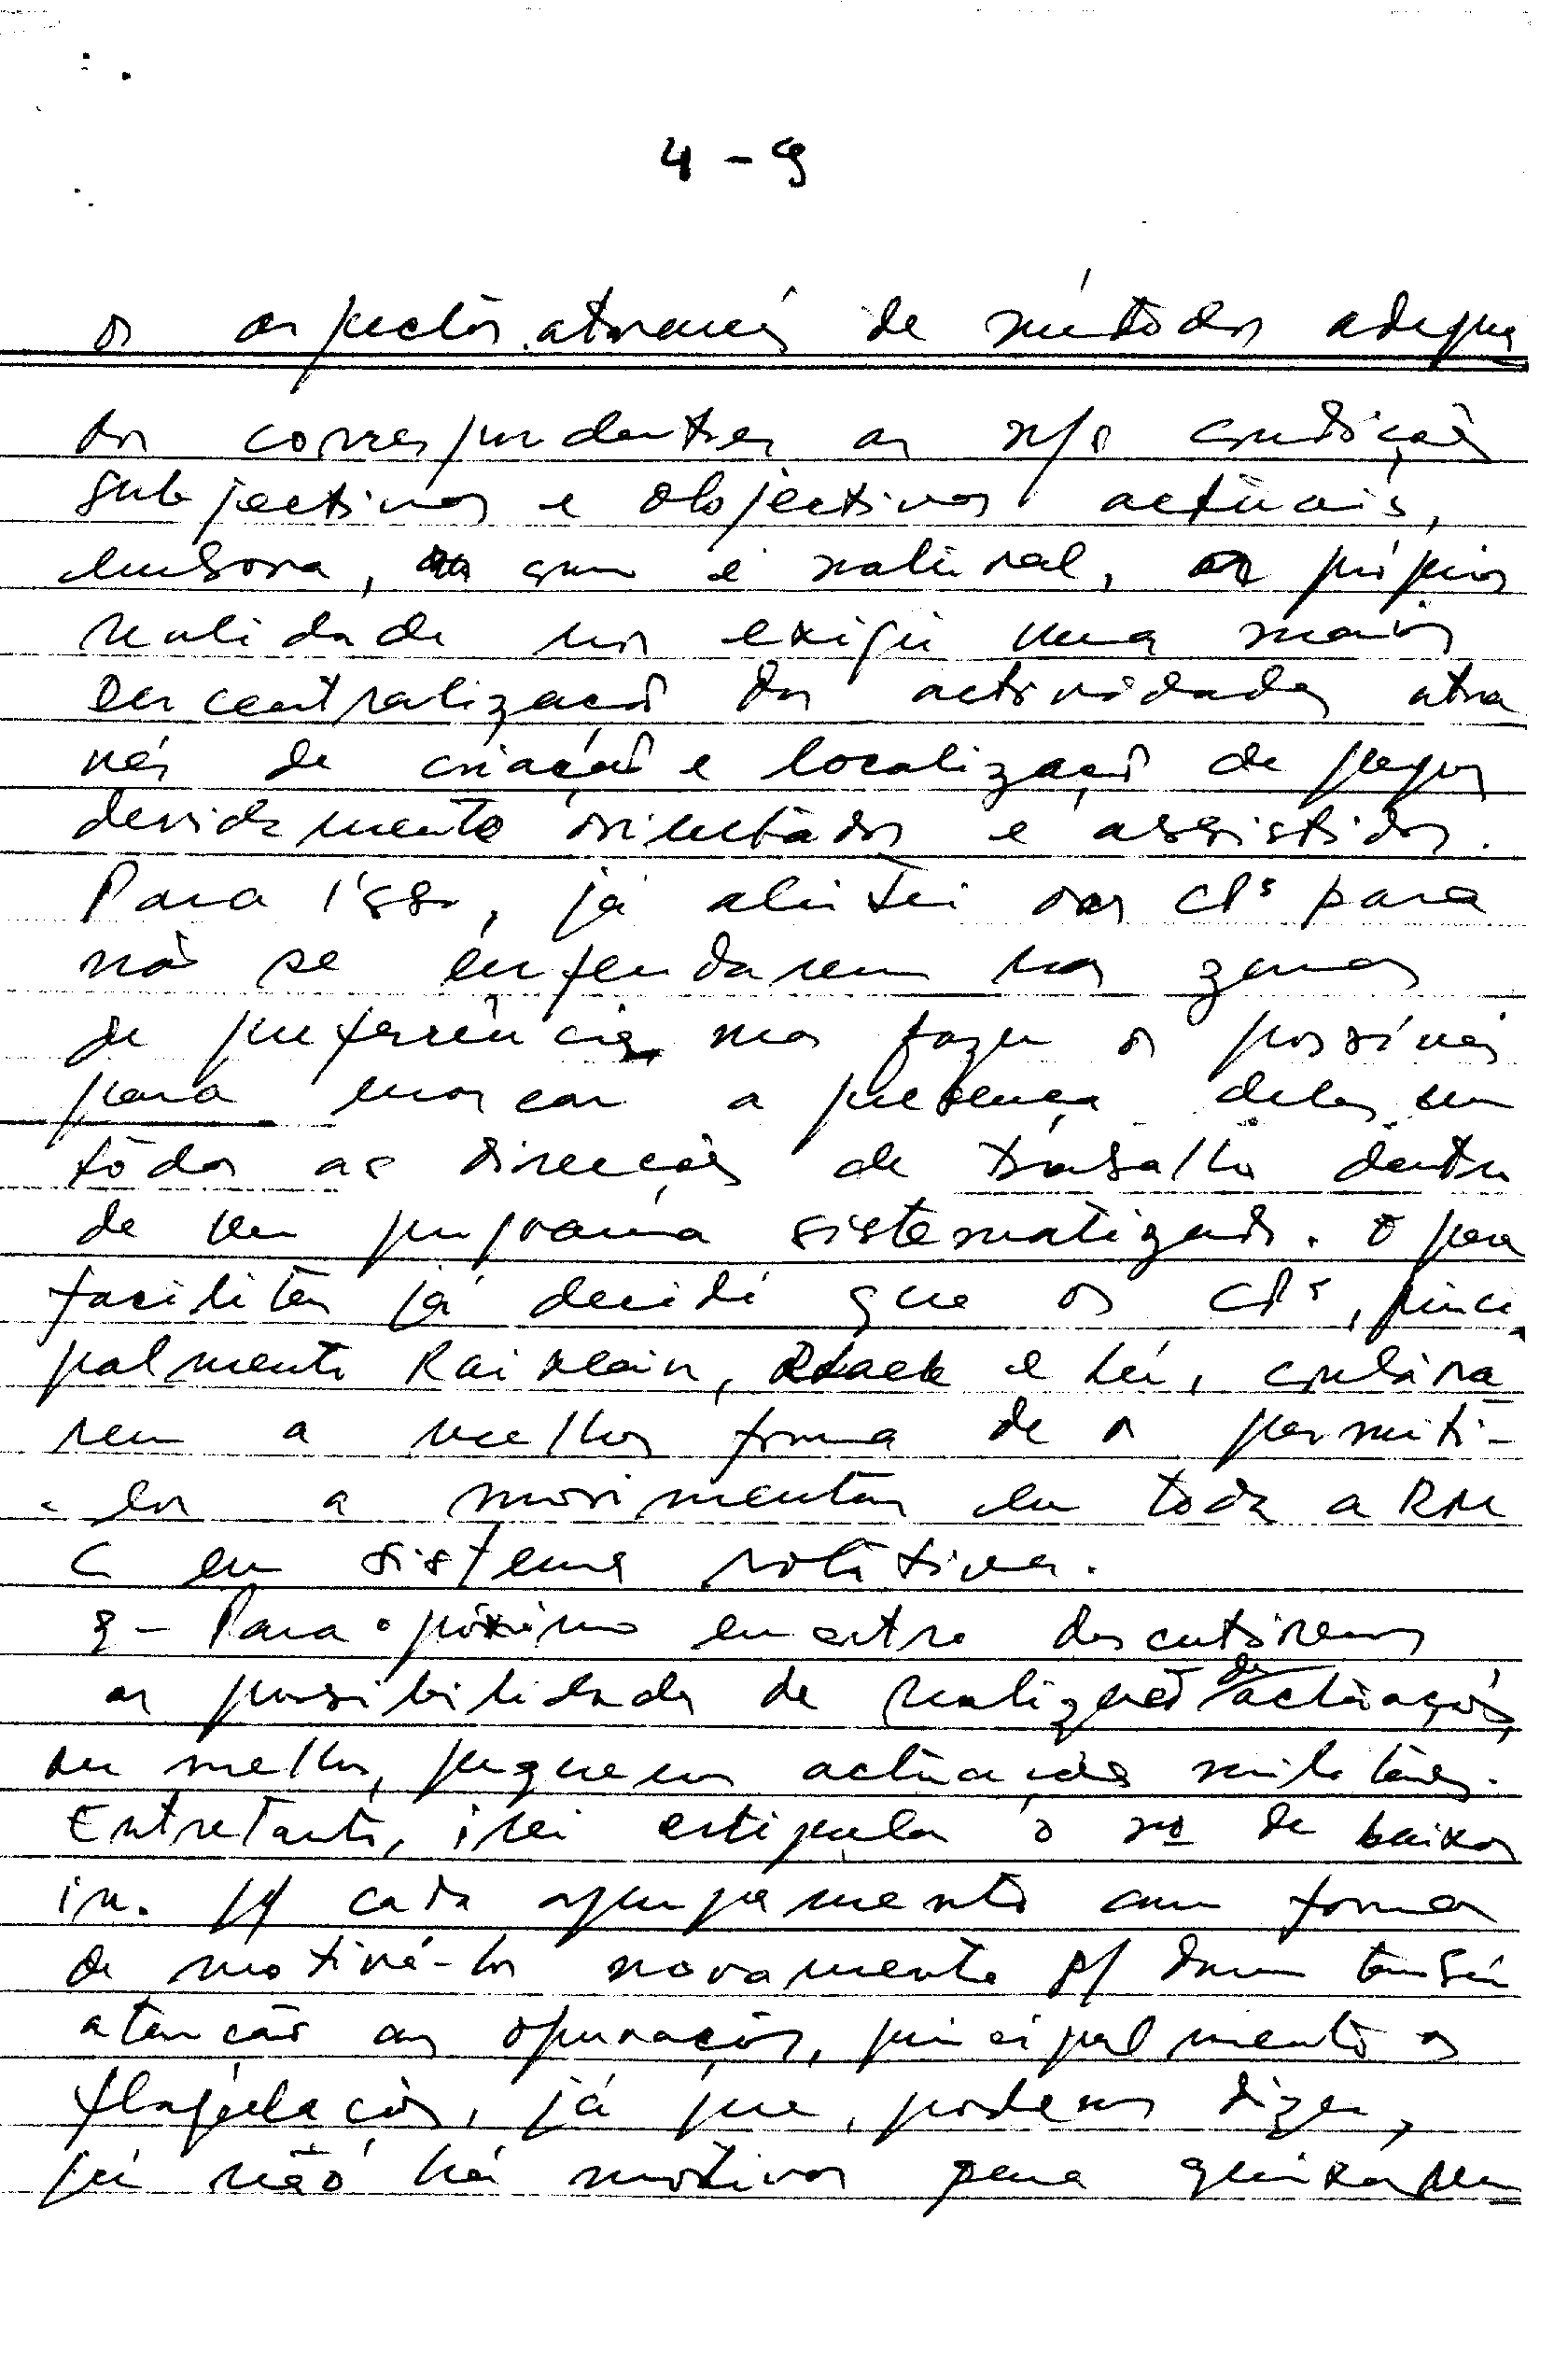 4 - 9
os aspectos através de métodos adequa
dos correspondentes as n/s condições
subjectivas e objectivas actuais,
embora, como é natural, as própias
realidade nos exigir uma maior
descentralização das actividades atra
vés de criação e localização de
devidamente orientados e assistidos.
Para isso, já alertei os CPs para
não se enfeudarem nas zonas
de preferência mas fazer os possíveis
para marcar a presença deles em
tôdas as direcções de trabalho dentro
de um programa sistematizado. E para
facilitar já decidi que os CPs, princi
palmente Rai Klain, e Lei,
rem a melhor forma de os permiti-
- los a movimentar em toda a RM
C em sistema rotativa.
9 - Para o próximo encontro discutiremos
as possibilidades de realização de actuações,
ou melhor, pequenas actuações militares.
Entretanto, irei estipular o nº de baixas
in. p/ cada agrupamento como forma
de motivá-los novamente p/ darem também
atenção as operações, principalmente as
flagelações, já que, podemos dizer,
já não há motivos para queixarem